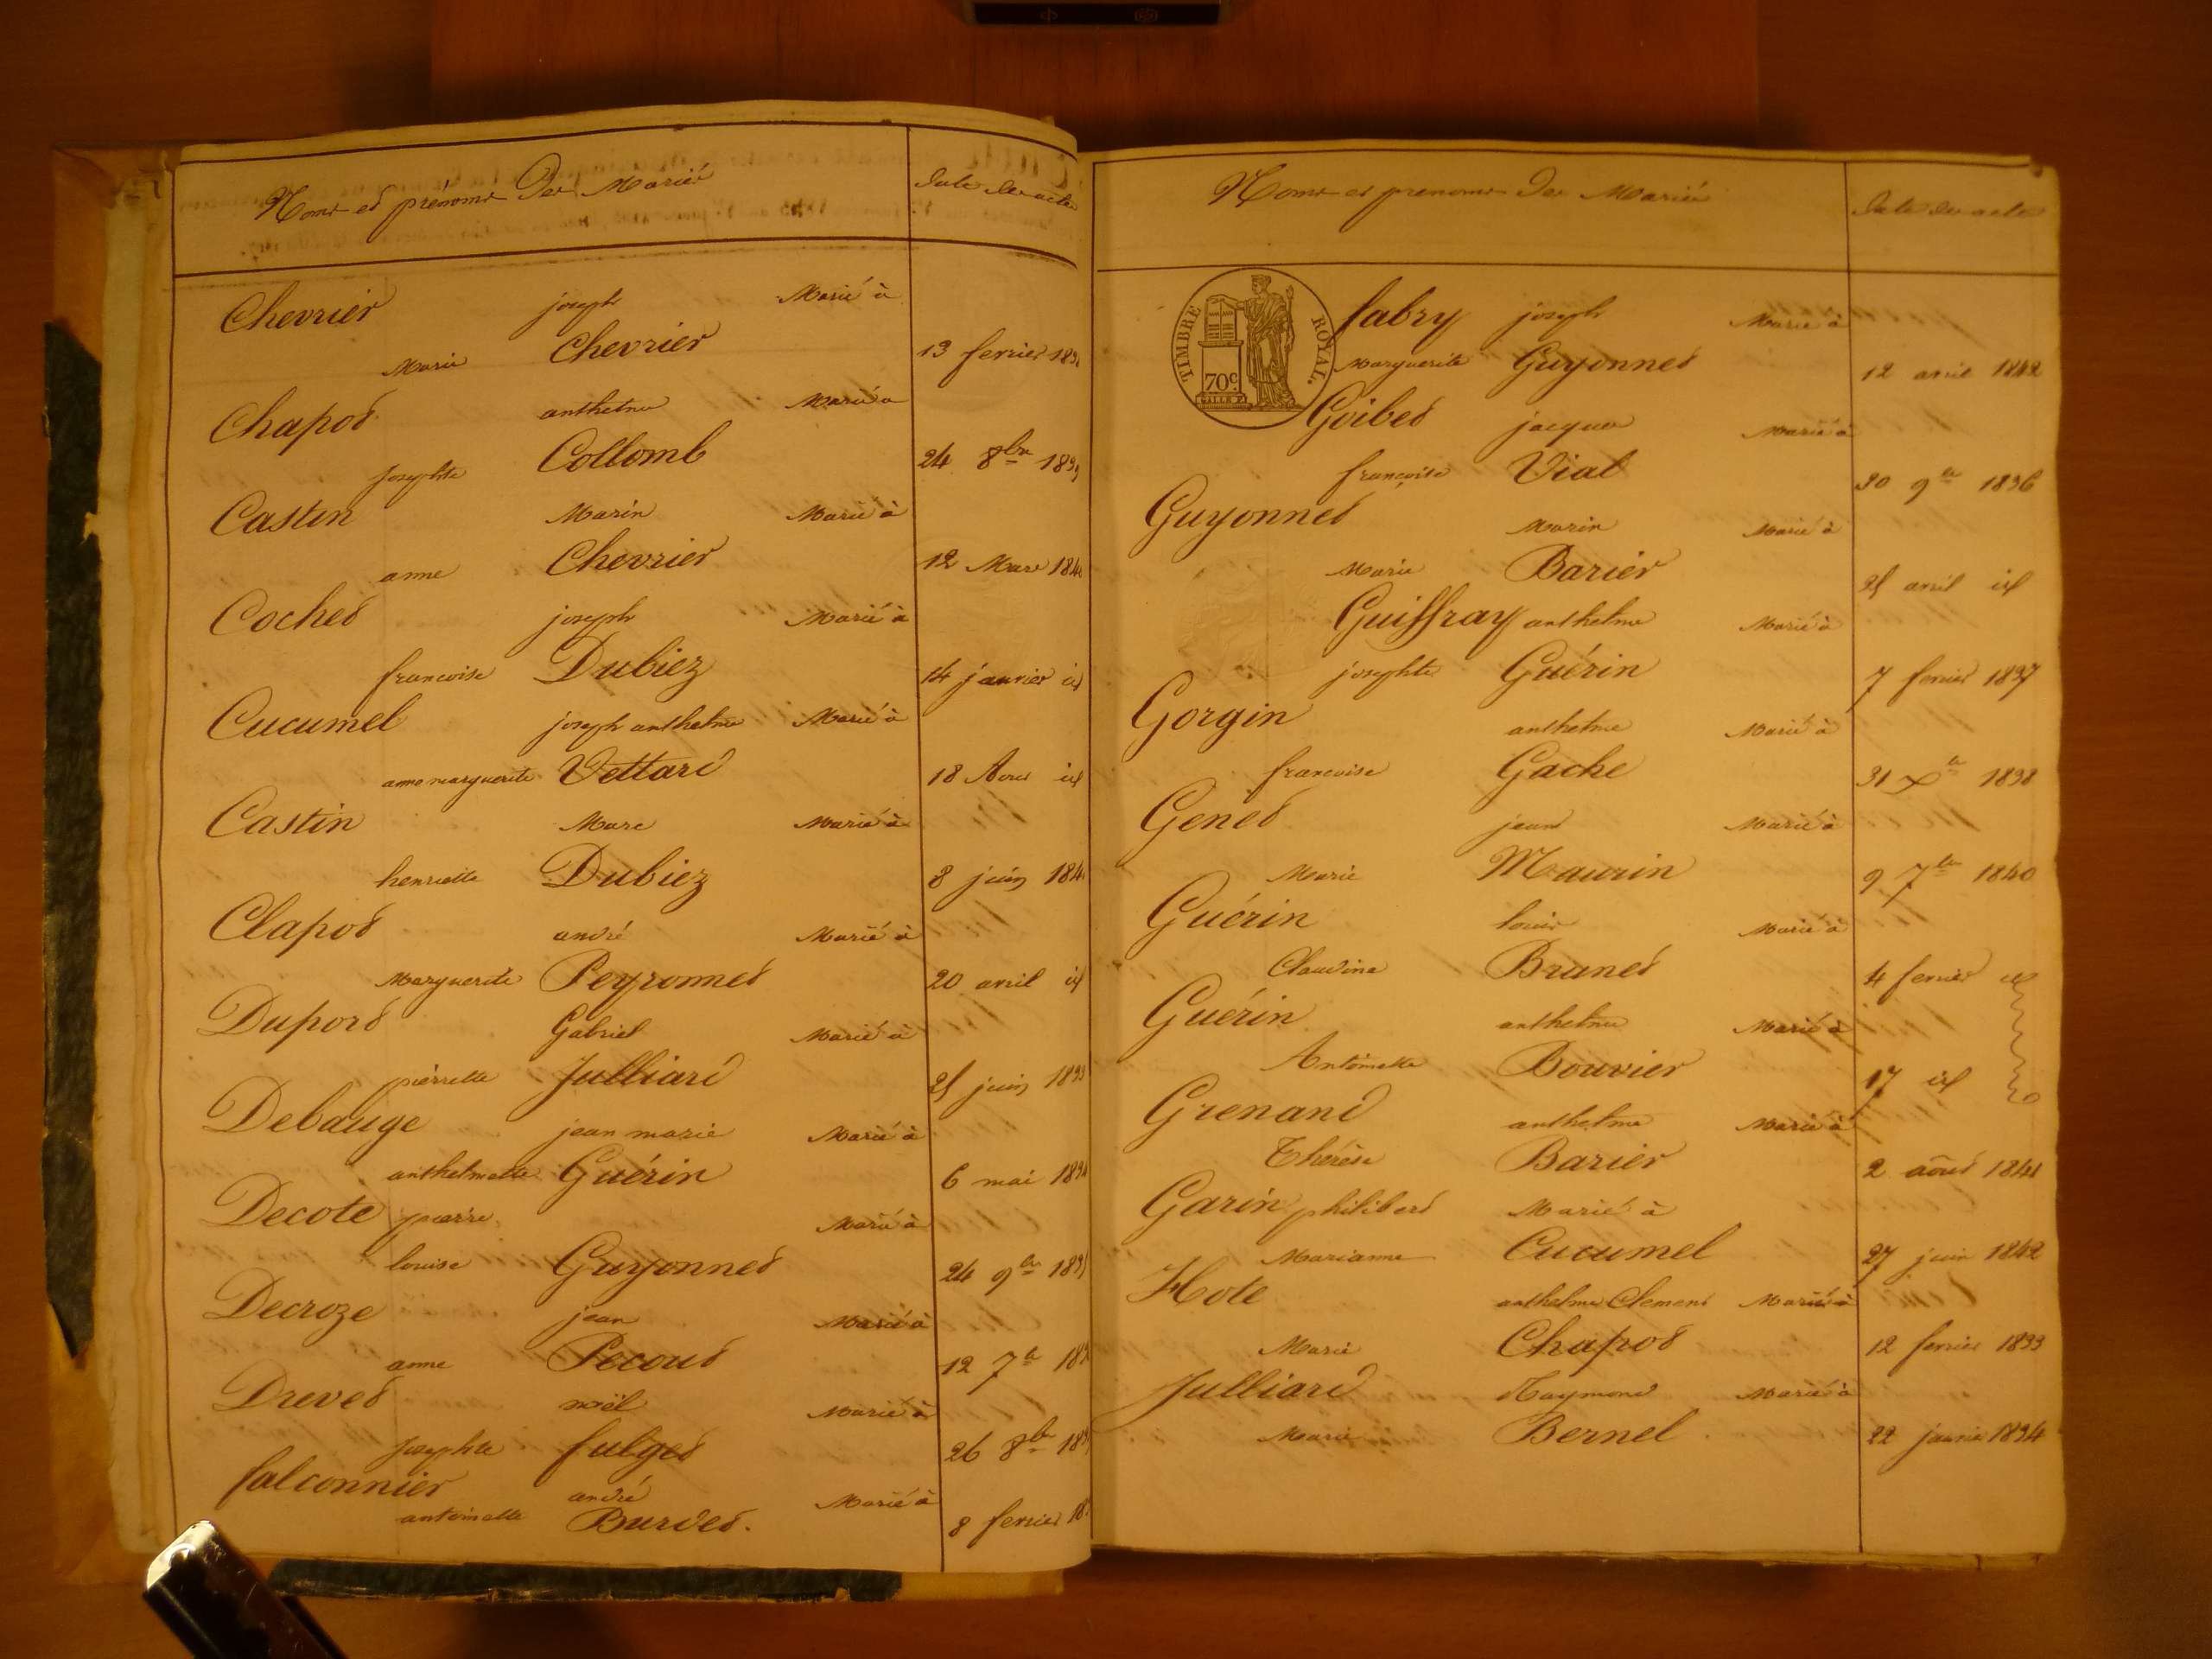 Noms et prénoms Des Mariés
Date des actes
Chevrier joseph Marié à
Marie Chevrier 13 fevrier
Chapot anthelme Marié à
Josephte Collomb 24 8bre
Castin Marin Marié à
anne Chevrier 12 Mars
Cochet joseph Marié à
francoise Dubiez 14 janvier id
Cucumel joseph anthelme Marié à
anne marguerite Vettard 18 Aout id
Castin Marc Marié à
henriette Dubiez 8 juin
Clapot andré Marié à
Marguerite Peyronnet 20 avril id
Duport Gabriel Marié à
pierrette Julliard 25 juin 1833
Debauge jean marie Marié à
anthelmette Guérin 6 mai 1834
Decote pierre Marié à
louise Guyonnet 24 9bre
Decroze jean Marié à
anne Pecout 12 7b
Drevet noël Marié à
Josephte fulget 26 8bre
falconnier andré Marié à
antoinette Burdet. 8 fevrier
Noms et prenoms Des Mariés
Date des actes
TIMBRE ROYAL.
70c.
fabry joseph Marié à
Marguerite Guyonnet 12 avril 1842
Goibet jacques Marié à
françoise Vial 30 9bre 1836
Guyonnet Marin Marié à
Marie Barier 25 avril id
Guiffray anthelme Marié à
josephte Guérin 7 fevrier 1837
Gorgin anthelme Marié à
francoise Gache 31 Xbre 1838
Genet jean Marié à
Marie Maurin 9 7bre 1840
Guérin louis Marié à
Claudine Brunet 4 fevrier id
Guérin anthelme Marié à
Antoinette Bouvier 17 id
Grenand anthelme Marié à
Thérèse Barier 2 août 1841
Garin philibert Marié à
Marianne Cucumel 27 juin 1842
Hote anthelme Clement Marié à
Marie Chapot 12 fevrier 1833
Julliard Raymond Marié à
Marie Bernel 22 janvier 1834